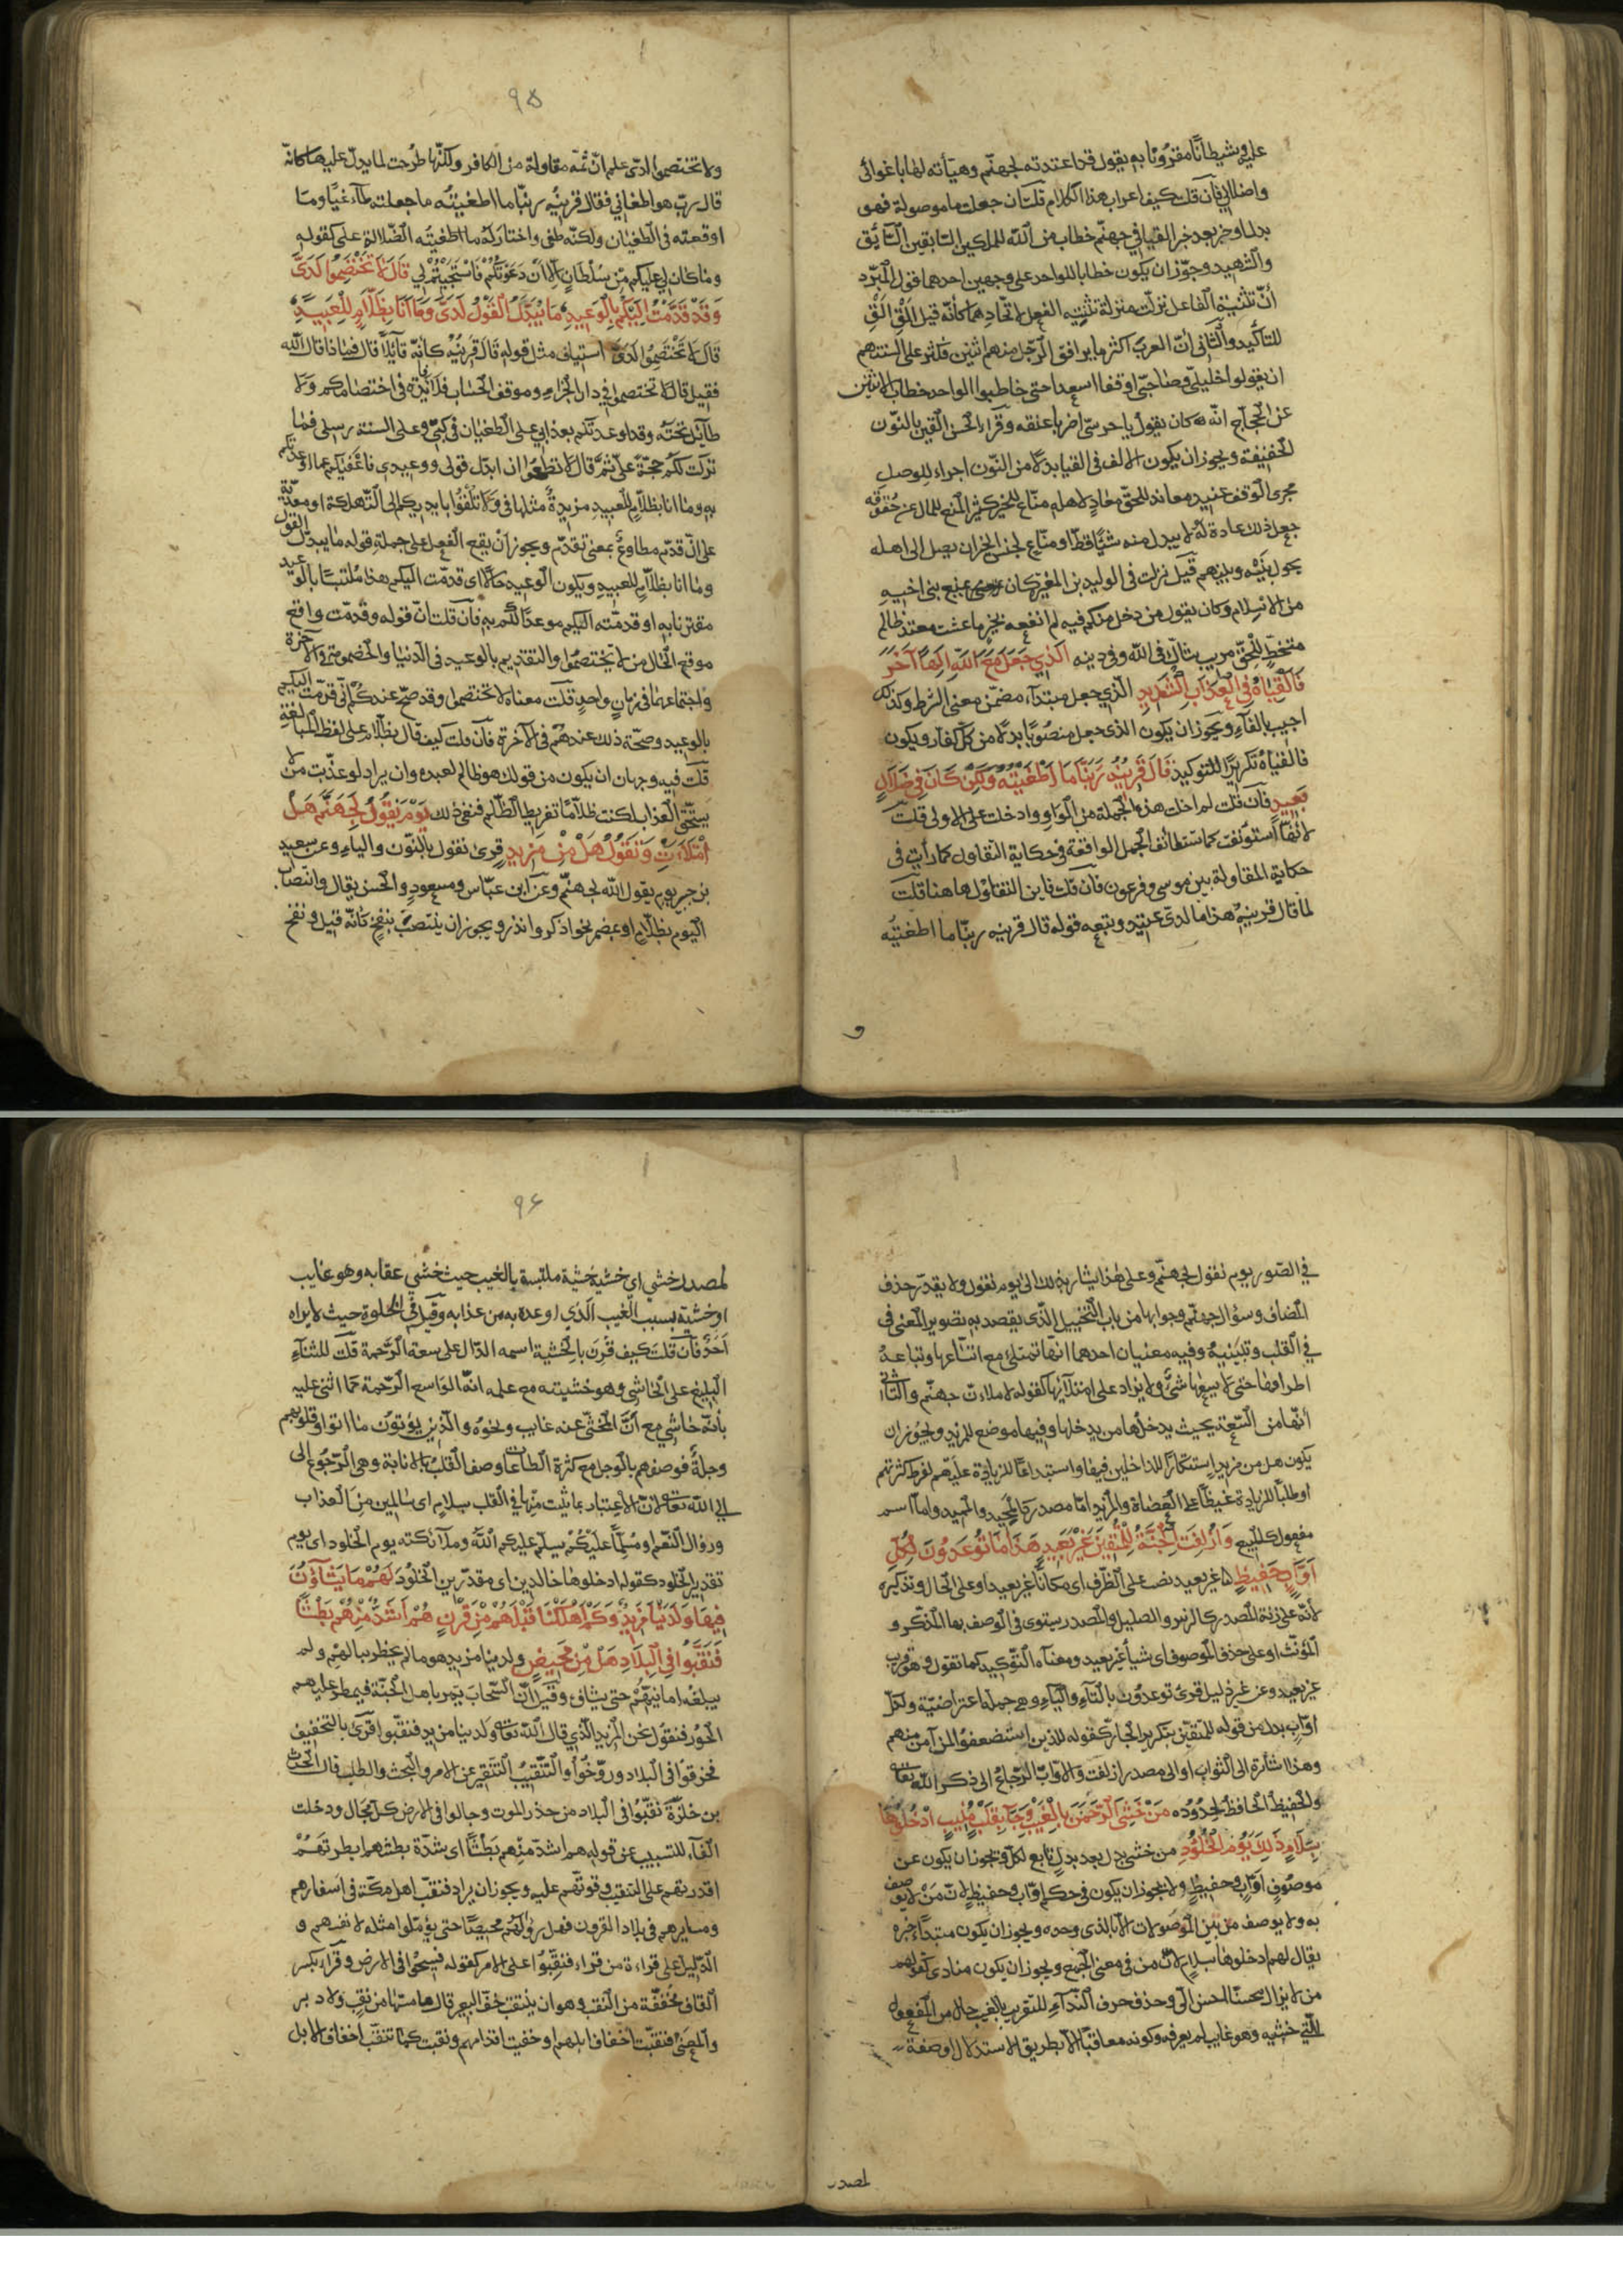 عليه وشيطانًا مقرونًا به يقول قد اعتدته لجهنّم وهيّأته لها باغوائى
واضلالى فآن قلت كيف اعراب هذا الكلام قلت ان جعلت ما موصولة فهو
بدل او خبر بعد خبر القيا فى جهنّم خطاب من الله للملكين السّابقين السّائق
والشهيد وجوّز ان يكون خطابا للواحد على وجهين احدهما قول المبرّد
انّ تثنية الفاعل نزلت منزلة تثنية الفعل لاتّحادهما كأنّه قيل الق الق
للتأكيد والثّانى انّ العرب اكثر ما يرافق الرّجل منهم اثنين فكثر على السنتهم
ان يقولوا خليلىّ وصاحبىّ وقفا واسعدا حتى خاطبوا الواحد خطاب الاثنين
عن الحجّاج انّه كان يقول يا حرسىّ اضربا عنقه وقرأ الحسن القين بالنّون
الخفيفة ويجوز ان يكون الالف فى القيا بدلًا من النّون اجراء للوصل
مجرى الوقف عنيد معاند للحقّ معاد لاهله منّاع للخير كثير المنع للمال عن حقوقه
جعل ذلك عادة له لا يبذل منه شيئًا قطّ او منّاع لجنس الخير ان يصل الى اهله
يحول بينه وبينهم قيل نزلت فى الوليد بن المغيرة كان يمنع بنى اخيه
من الاسلام وكان يقول من دخل منكم فيه لم انفعه بخير ما عشت معتد ظالم
متخطّ للحقّ مريب شاكّ فى الله وفى دينه الذى جعل مع الله الها آخر
فالقياه فى العذاب الشديد الّذى جعل مبتدأ مضمّن معنى الشرط وكذلك
اجيب بالفاء ويجوز ان يكون الذى جعل منصوبًا بدلًا من كلّ كفّار ويكون
فالقياه تكريرًا للتوكيد قال قرينه ربّنا ما اطغيته ولكن كان فى ضلال
بعيد فآن قلت لم اخلت هذه الجملة من الواو وادخلت على الاولى قلت
لانّها استؤنفت كما تستانف الجمل الواقعة فى حكاية التقاول كما رأيت فى
حكاية المقاولة بين موسى وفرعون فان قلت فاين التقاول هاهنا قلت
لمّا قال قرينه هذا ما لدىّ عتيد وتبعه قوله قال قرينه ربّنا ما اطغيته
و
٩٥
ولا تختصموا لدىّ علم انّ ثمّه مقاولة من الكافر ولكنّها طرحت لما يدلّ عليها كانّه
قال ربّ هو اطغانى فقال قرينه ربّنا ما اطغيته ما جعلته طاغيًا وما
اوقعته فى الطغيان ولكنّه طغى واختار الضّلالة على كقوله
وما كان لى عليكم من سلطان الا ان دعوتكم فاستجبتم لى قال لا تختصموا لدىّ
وقد قدّمت اليكم بالوعيد ما يبدّل القول لدىّ وما انا بظلّام للعبيد
قال لا تختصموا لدىّ استيناف مثل قوله قال قرينه كانّه قآئلًا قال فماذا قال الله
فقيل قال لا تختصموا فى دار الجزاء وموقف الحساب فلا فآئدة فى اختصامكم ولا
طآئل تحته وقد اوعدتكم بعذابى على الطغيان فى كتبى وعلى السنة رسلى فما
تركت لكم حجّة علىّ ثمّ قال لا تطمعوا ان ابدّل قولى ووعيدى فاعفيكم عما اوعدتكم
به وما انا بظلّام للعبيد مزيدة مثلها فى ولا تلقوا بايديكم الى التّهلكة او معدّية
على انّ قدّم مطاوع بمعنى تقدّم ويجوز ان يقع الفعل على جملة قوله ما يبدّل القول
وما انا بظلّام للعبيد ويكون الوعيد حالًا اى قدّمت اليكم هذا ملتبسًا بالوعيد
مقترنا به او قدّمته اليكم موعدًا لكم به فان قلت انّ قوله وقدّمت واقع
موقع الحال من لا تختصموا والتقديم بالوعيد فى الدنيا والخصومة فى الآخرة
واجتماعهما فى زمان واحد قلت معناه لا تختصموا وقد صحّ عندكم انّى قدّمت اليكم
بالوعيد وصحّة ذلك عندهم فى الآخرة فآن قلت كيف قال بظلّام على لفظ المبالغة
قلت فيه وجهان ان يكون من قولك هو ظالم لعبده وان يراد لو عذّبت من لا
يستحقّ العذاب لكنت ظلّامًا تفريط الظّلم فنفى ذلك يوم نقول لجهنّم هل
امتلأت وتقول هل من مزيد قرئ نقول بالنّون والياء وعن سعيد
بن جبير يوم يقول الله لجهنّم وعن ابن عبّاس ومسعود والحسن يقال وانتصاب
اليوم بظلّام او بمضمر نحو اذكر وانذر ويجوز ان ينتصب بنفخ كانّه قيل ونفخ
فى الصّور يوم نقول لجهنّم وعلى هذا يشار بذلك الى يوم نقول ولا يقدّر حذف
المضاف وسؤال جهنّم وجوابها من باب التّخييل الّذى يقصد به تصوير المعنى فى
فى القلب وتبيّنه وفيه معنيان احدهما انّها تمتلئ مع اتّساعها وتباعد
اطرافها حتى لا يسعها شئ ولا يزاد على امتلآئها كقوله لاملأنّ جهنّم والثّانى
انّها من السّعة بحيث يدخلها من يدخلها وفيها موضع للمزيد ويجوز ان
يكون هل من مزيد استكثارًا للداخلين فيها واستبداعًا للزيادة عليهم لفرط كثرتهم
او طلبًا للزيادة غيظًا على العصاة والمزيد امّا مصدر كالمحيد والمميد وامّا اسم
مفعول كالمبيع وازلفت الجنّة للمتّقين غير بعيد هذا ما توعدون لكلّ
اوّاب حفيظ غير بعيد نصب على الظّرف اى مكانًا غير بعيد او على الحال وتذكيره
لانّه على زنة المصدر كالزئير والصليل والمصدر يستوى فى الوصف بها المذكّر و
المؤنّث او على حذف الموصوف اى شيأ غير بعيد ومعناه التّوكيد كما تقول هو قريب
غير بعيد وعزيز غير ذليل قرئ توعدون بالتّاء والياء وهى جملة اعتراضيّة ولكلّ
اوّاب بدل من قوله للمتّقين بتكرير الجارّ كقوله للذين استضعفوا لمن آمن منهم
وهذا اشارة الى الثّواب او الى مصدر ازلفت والاوّاب الرّجّاع الى ذكر الله تعالى
والحفيظ الحافظ لحدوده من خشى الرّحمن بالغيب وجآء بقلب منيب ادخلوها
بسلام ذلك يوم الخلود من خشى بدل بعد بدل تابع لكلّ ويجوز ان يكون عن
موصوف اوّاب وحفيظ ولا يجوز ان يكون فى حكم اوّاب وحفيظ لانّ من لا يوصف
به ولا يوصف من بين الموصولات الّا بالذى وحده ويجوز ان يكون مبتدأ خبره
يقال لهم ادخلوها بسلام لانّ من فى معنى الجمع ويجوز ان يكون منادى كقولهم
من لا يزال محسنًا احسن الىّ وحذف حرف النّدآء للتقريب بالغيب حال من المفعول
اى خشيه وهو غايب لم يعرفه وكونه معاقبًا الّا بطريق الاستدلال او صفة
لمصدر
٩٦
لمصدر خشى اى خشيه خشية ملتبسة بالغيب حيث خشى عقابه وهو غايب
او خشية بسبب الغيب الّذى اوعده به من عذابه وقيل فى الخلوة حيث لا يراه
احد فآن قلت كيف قرن بالخشية اسمه الدّال على سعة الرّحمة قلت للثنآء
البليغ على الخاشى وهو خشيته مع علمه انّه الواسع الرّحمة كما اثنى عليه
بأنّه خاشى مع انّ المخشىّ عنه غايب ونحوه والّذين يؤتون ما آتوا وقلوبهم
وجلة فوصفهم بالوجل مع كثرة الطاعات وصف القلب بالانابة وهى الرّجوع الى
الى الله تعالى لانّ الاعتبار بما ثبت منها فى القلب بسلام اى سالمين من العذاب
وزوال النّعم او مسلّمًا عليكم يسلّم عليكم الله وملآئكته يوم الخلود اى يوم
تقدير الخلود كقوله ادخلوها خالدين اى مقدّرين الخلود لهم ما يشآؤن
فيها ولدينا مزيد وكم اهلكنا قبلهم من قرن هم اشدّ منهم بطشًا
فنقّبوا فى البلاد هل من محيص ولدينا مزيد هو ما لم يخطر ببالهم ولم
يبلغه امانيّهم حتى يشاؤه وقيل انّ السّحاب يمرّ باهل الجنّة فيمطر عليهم
الحور فتقول نحن المزيد الّذى قال الله تعالى ولدينا مزيد فنقّبوا قرئ بالتخفيف
فخرقوا فى البلاد ودوّخوا والتّنقيب التّنقير عن الامر والبحث والطلب قال الحرث
بن حلزة نقّبوا فى البلاد من حذر الموت وجالوا فى الارض كلّ مجال ودخلت
الفآء للتسبيب عن قوله هم اشدّ منهم بطشًا اى شدّة بطشهم ابطرتهم
اقدرتهم على التنقيب وقوّتهم عليه ويجوز ان يراد فنقّب اهل مكّة فى اسفارهم
ومسايرهم فى بلاد القرون فهل رأوا لهم محيصًا حتى يؤمّلوا مثله لانفسهم و
الدّليل على قراءة من قراء فنقّبوا على الامر كقوله فسيحوا فى الارض وقراء بكسر
القاف مخفّفة من النّقب وهو ان ينتقب خفّ البعير قال ما مسّها من نقب ولا دبر
والمعنى فنقبت اخفاف ابلهم او حفيت اقدامهم ونقبت كما تنقب اخفاف الابل